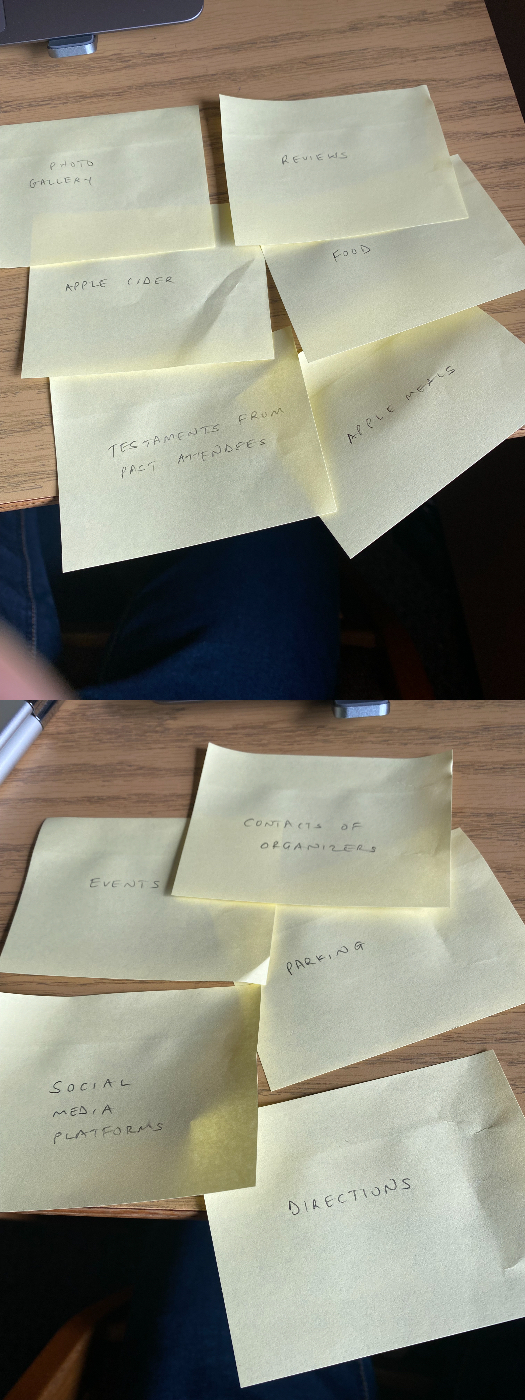 PHOTO
GALLERY
REVIEWS
APPLE CIDER
FOOD
TESTAMENTS FROM
PAST ATTENDEES
APPLE MEALS
CONTACTS OF
ORGANIZERS
EVENTS
PARKING
SOCIAL
MEDIA
PLATFORMS
DIRECTIONS